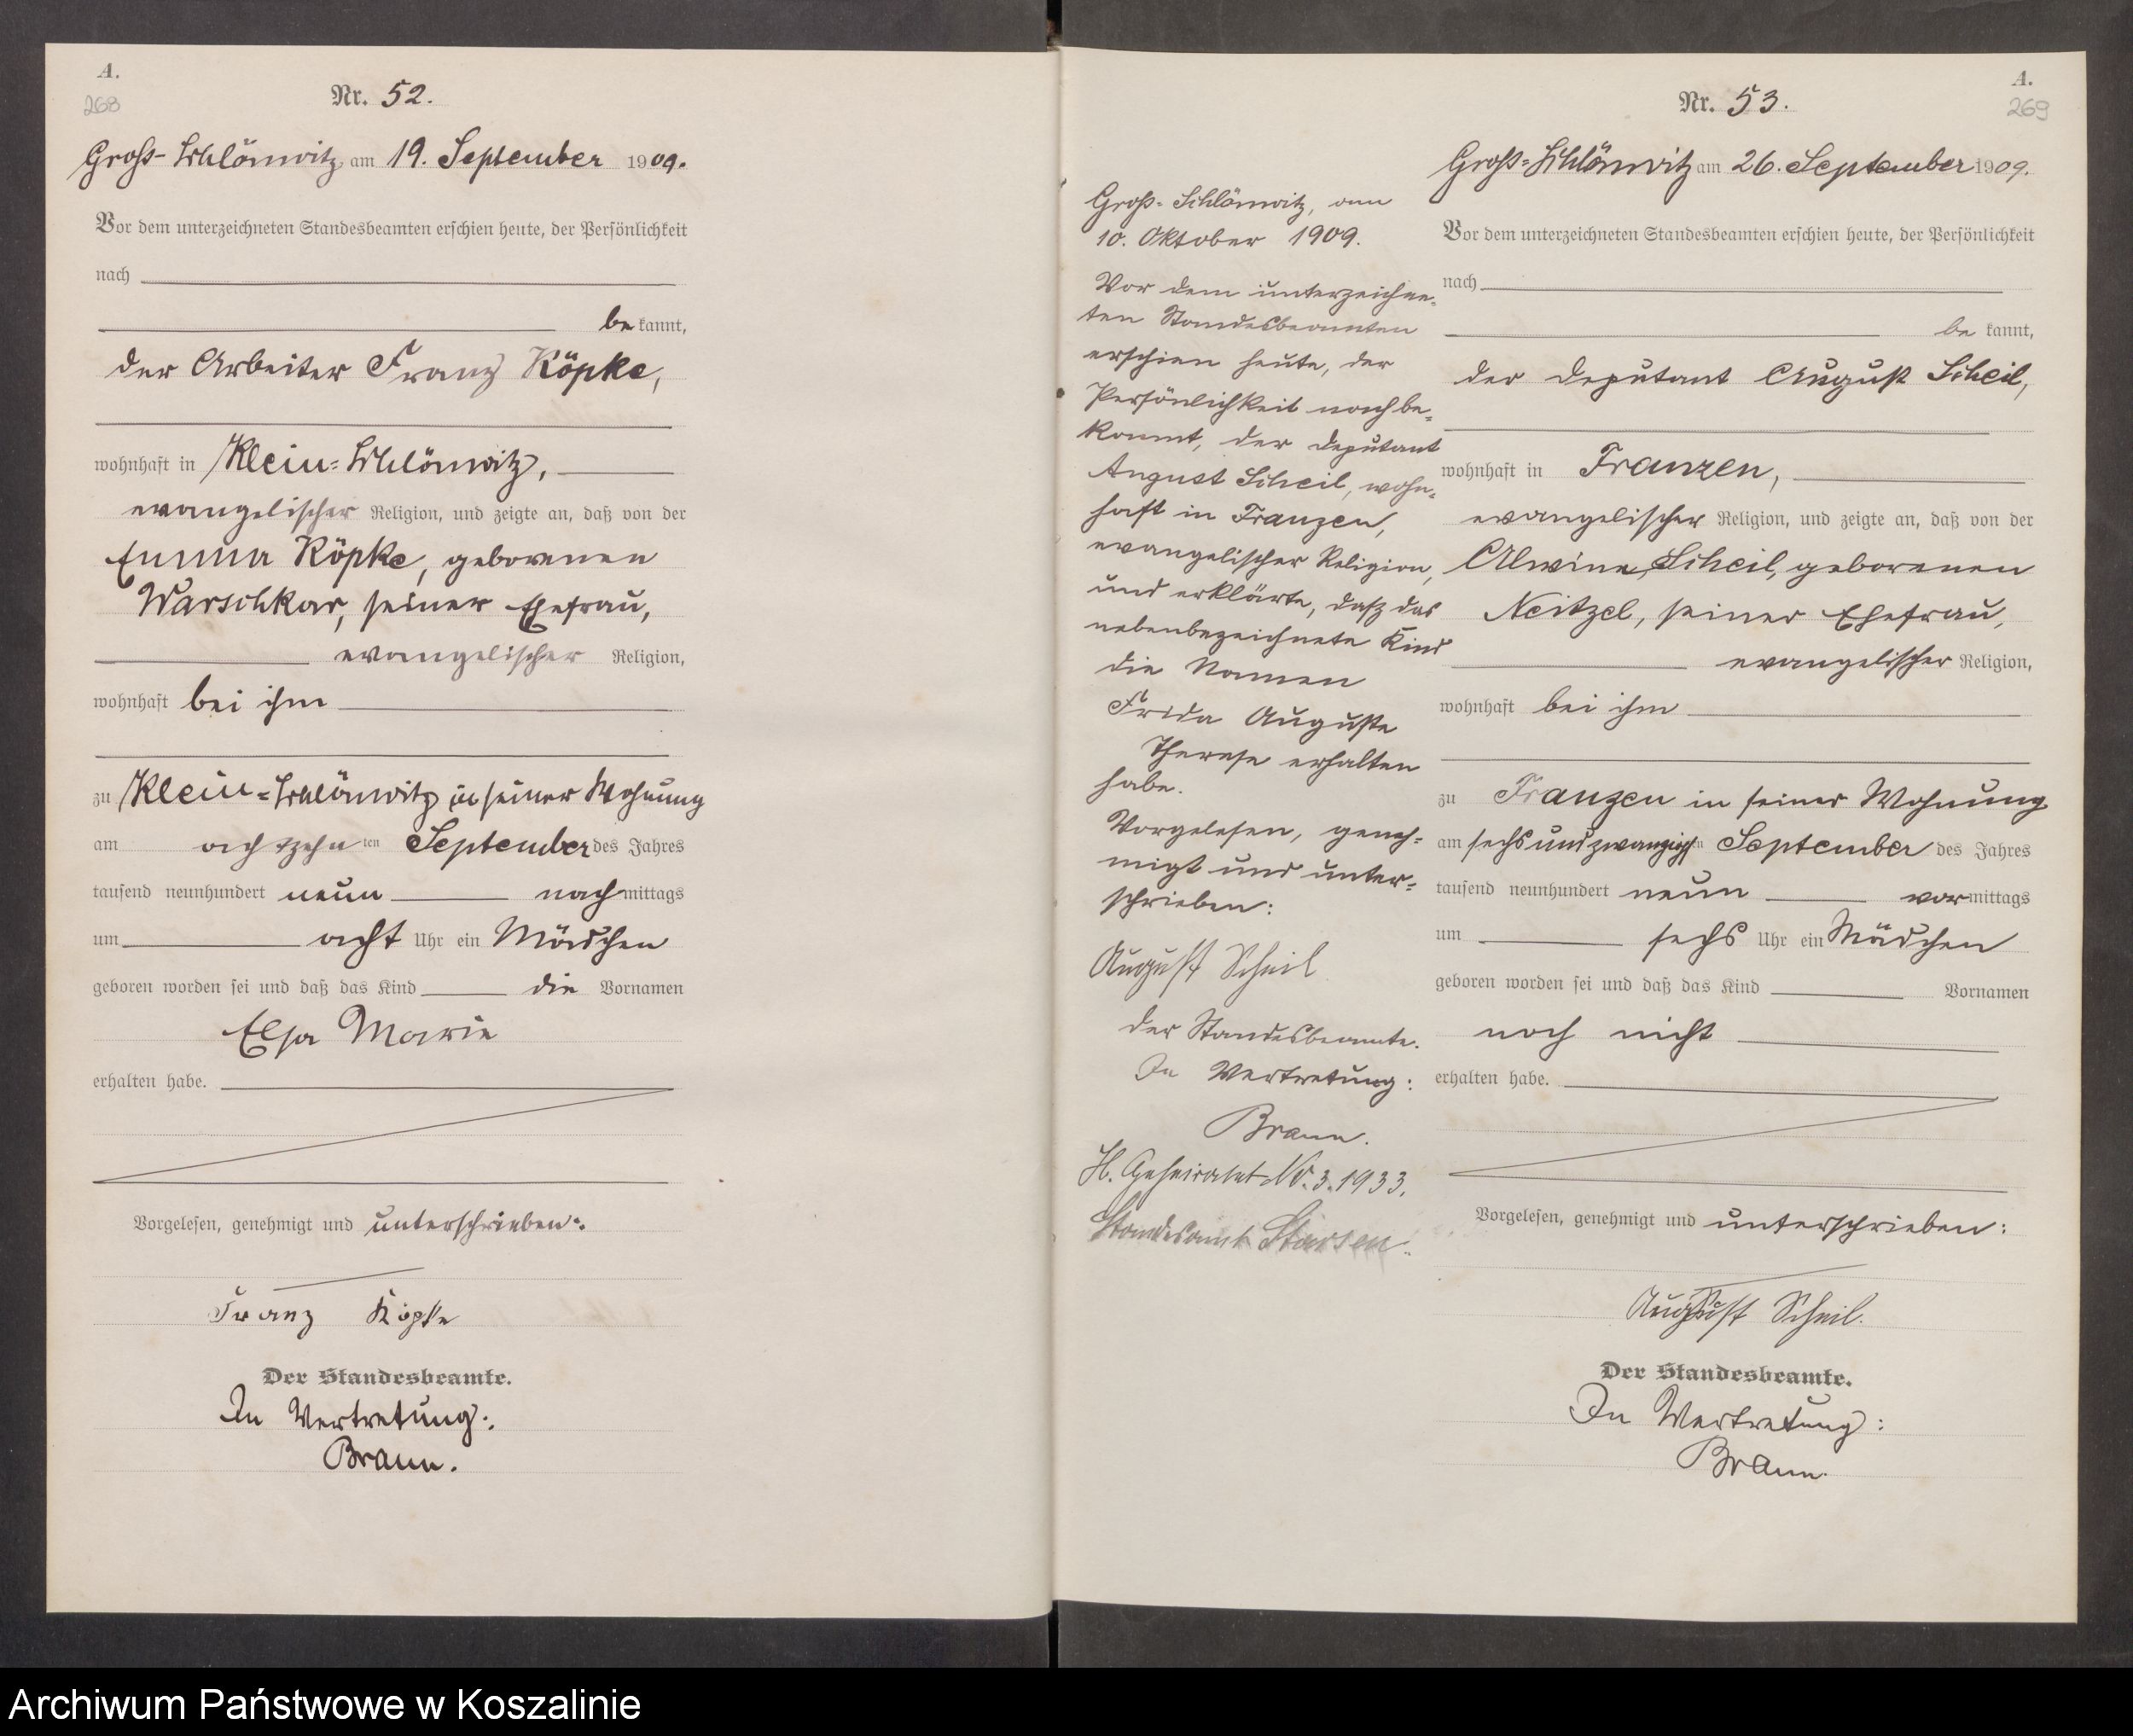 A.
268
Nr. 52.
Groß-Schlönwitz am 19. September 1909.
Vor dem unterzeichneten Standesbeamten erschien heute, der Persönlichkeit
nach
be kannt,
der Arbeiter Franz Köpke,
wohnhaft in Klein-Schlönwitz,
evangelischer Religion, und zeigte an, daß von der
Emma Köpke, geborenen
Warschkar, seiner Ehefrau,
evangelischer Religion,
wohnhaft bei ihm
zu Klein-Schlönwitz in seiner Wohnung
am achtzehnten September des Jahres
tausend neunhundert neun nachmittags
um acht Uhr ein Mädchen
geboren worden sei und daß das Kind die Vornamen
Elsa Marie
erhalten habe.
Vorgelesen, genehmigt und unterschrieben:
Franz Köpke
Der Standesbeamte.
In Vertretung:
Braun.
Groß-Schlönwitz, am
10. Oktober 1909.
Vor dem unterzeichne-
ten Standesbeamten
erschien heute, der
Persönlichkeit nach be-
kannt, der Deputant
August Scheil, wohn-
haft in Franzen,
evangelischer Religion,
und erklärte, daß das
nebenbezeichnete Kind
die Namen
Frida Auguste
Therese erhalten
habe.
Vorgelesen, geneh-
migt und unter-
schrieben:
August Scheil
Der Standesbeamte.
In Vertretung:
Braun.
H. Geheiratet Nr. 3. 1933.
Standesamt Starsen.
A.
269
Nr. 53.
Groß-Schlönwitz am 26. September 1909.
Vor dem unterzeichneten Standesbeamten erschien heute, der Persönlichkeit
nach
be kannt,
der Deputant August Scheil,
wohnhaft in Franzen,
evangelischer Religion, und zeigte an, daß von der
Alwine Scheil, geborenen
Neitzel, seiner Ehefrau,
evangelischer Religion,
wohnhaft bei ihm
zu Franzen in seiner Wohnung
am sechsundzwanzigsten September des Jahres
tausend neunhundert neun vormittags
um sechs Uhr ein Mädchen
geboren worden sei und daß das Kind Vornamen
noch nicht
erhalten habe.
Vorgelesen, genehmigt und unterschrieben:
August Scheil.
Der Standesbeamte.
In Vertretung:
Braun.
Archiwum Państwowe w Koszalinie